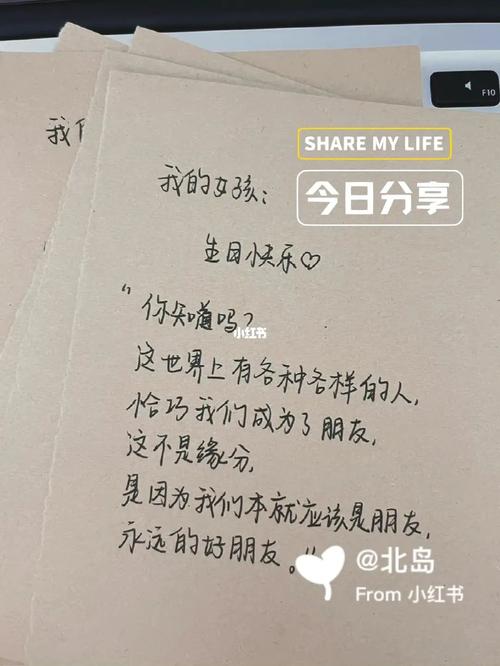 F10
SHARE MY LIFE
今日分享
我的女孩：
生日快乐♡
“你知道吗？
小红书
这世界上有各种各样的人，
恰巧我们成为了朋友，
这不是缘分，
是因为我们本就应该是朋友，
永远的好朋友。”
@北岛
From 小红书